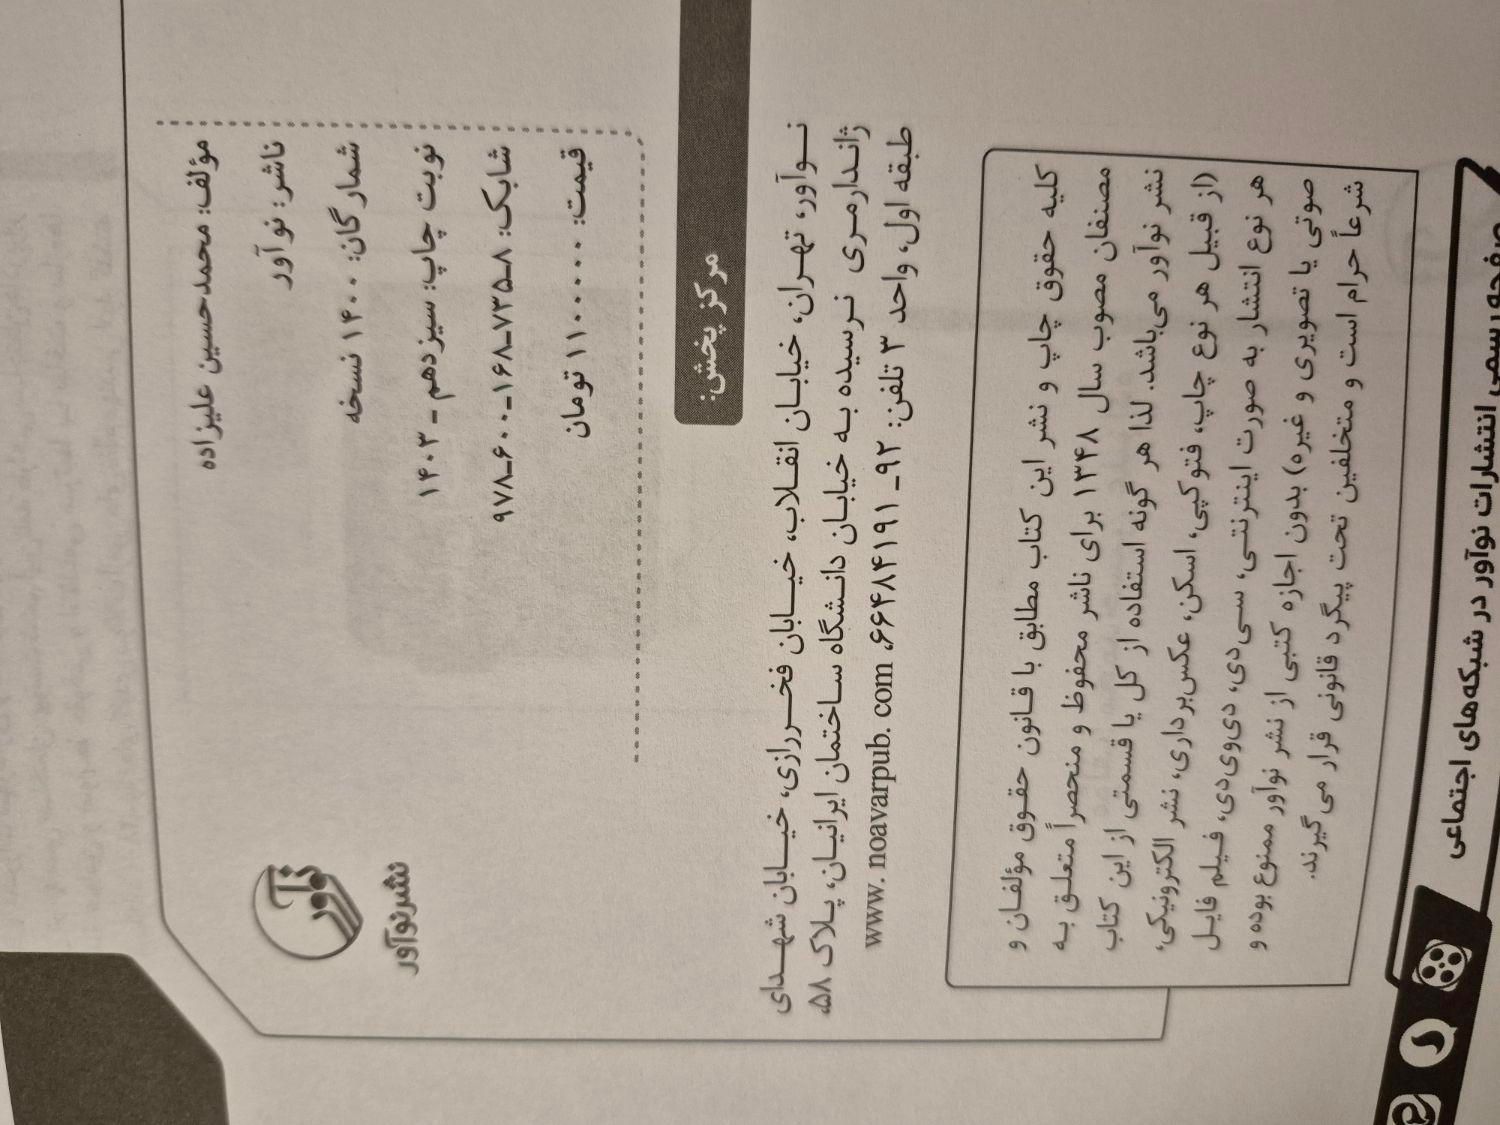 مؤلف: محمدحسین علیزاده
ناشر: نوآور
شمارگان: ۱۴۰۰ نسخه
نوبت چاپ: سیزدهم ـ ۱۴۰۳
شابک: ۸-۷۳۵-۱۶۸-۶۰۰-۹۷۸
قیمت: ۱۱۰۰۰۰۰ تومان
نوآور
نشر نوآور
مرکز پخش:
نوآور، تهران، خیابان انقلاب، خیابان فخررازی، خیابان شهدای
ژاندارمری نرسیده به خیابان دانشگاه ساختمان ایرانیان، پلاک ۵۸،
طبقه اول، واحد ۳ تلفن: ۹۲ـ ۶۶۴۸۴۱۹۱، www. noavarpub. com
کلیه حقوق چاپ و نشر این کتاب مطابق با قانون حقوق مؤلفان و
مصنفان مصوب سال ۱۳۴۸ برای ناشر محفوظ و منحصراً متعلق به
نشر نوآور می‌باشد. لذا هر گونه استفاده از کل یا قسمتی از این کتاب
(از قبیل هر نوع چاپ، فتوکپی، اسکن، عکس‌برداری، نشر الکترونیکی،
هر نوع انتشار به صورت اینترنتی، سی‌دی، دی‌وی‌دی، فیلم فایل
صوتی یا تصویری و غیره) بدون اجازه کتبی از نشر نوآور ممنوع بوده و
شرعاً حرام است و متخلفین تحت پیگرد قانونی قرار می‌گیرند.
صفحه رسمی انتشارات نوآور در شبکه‌های اجتماعی